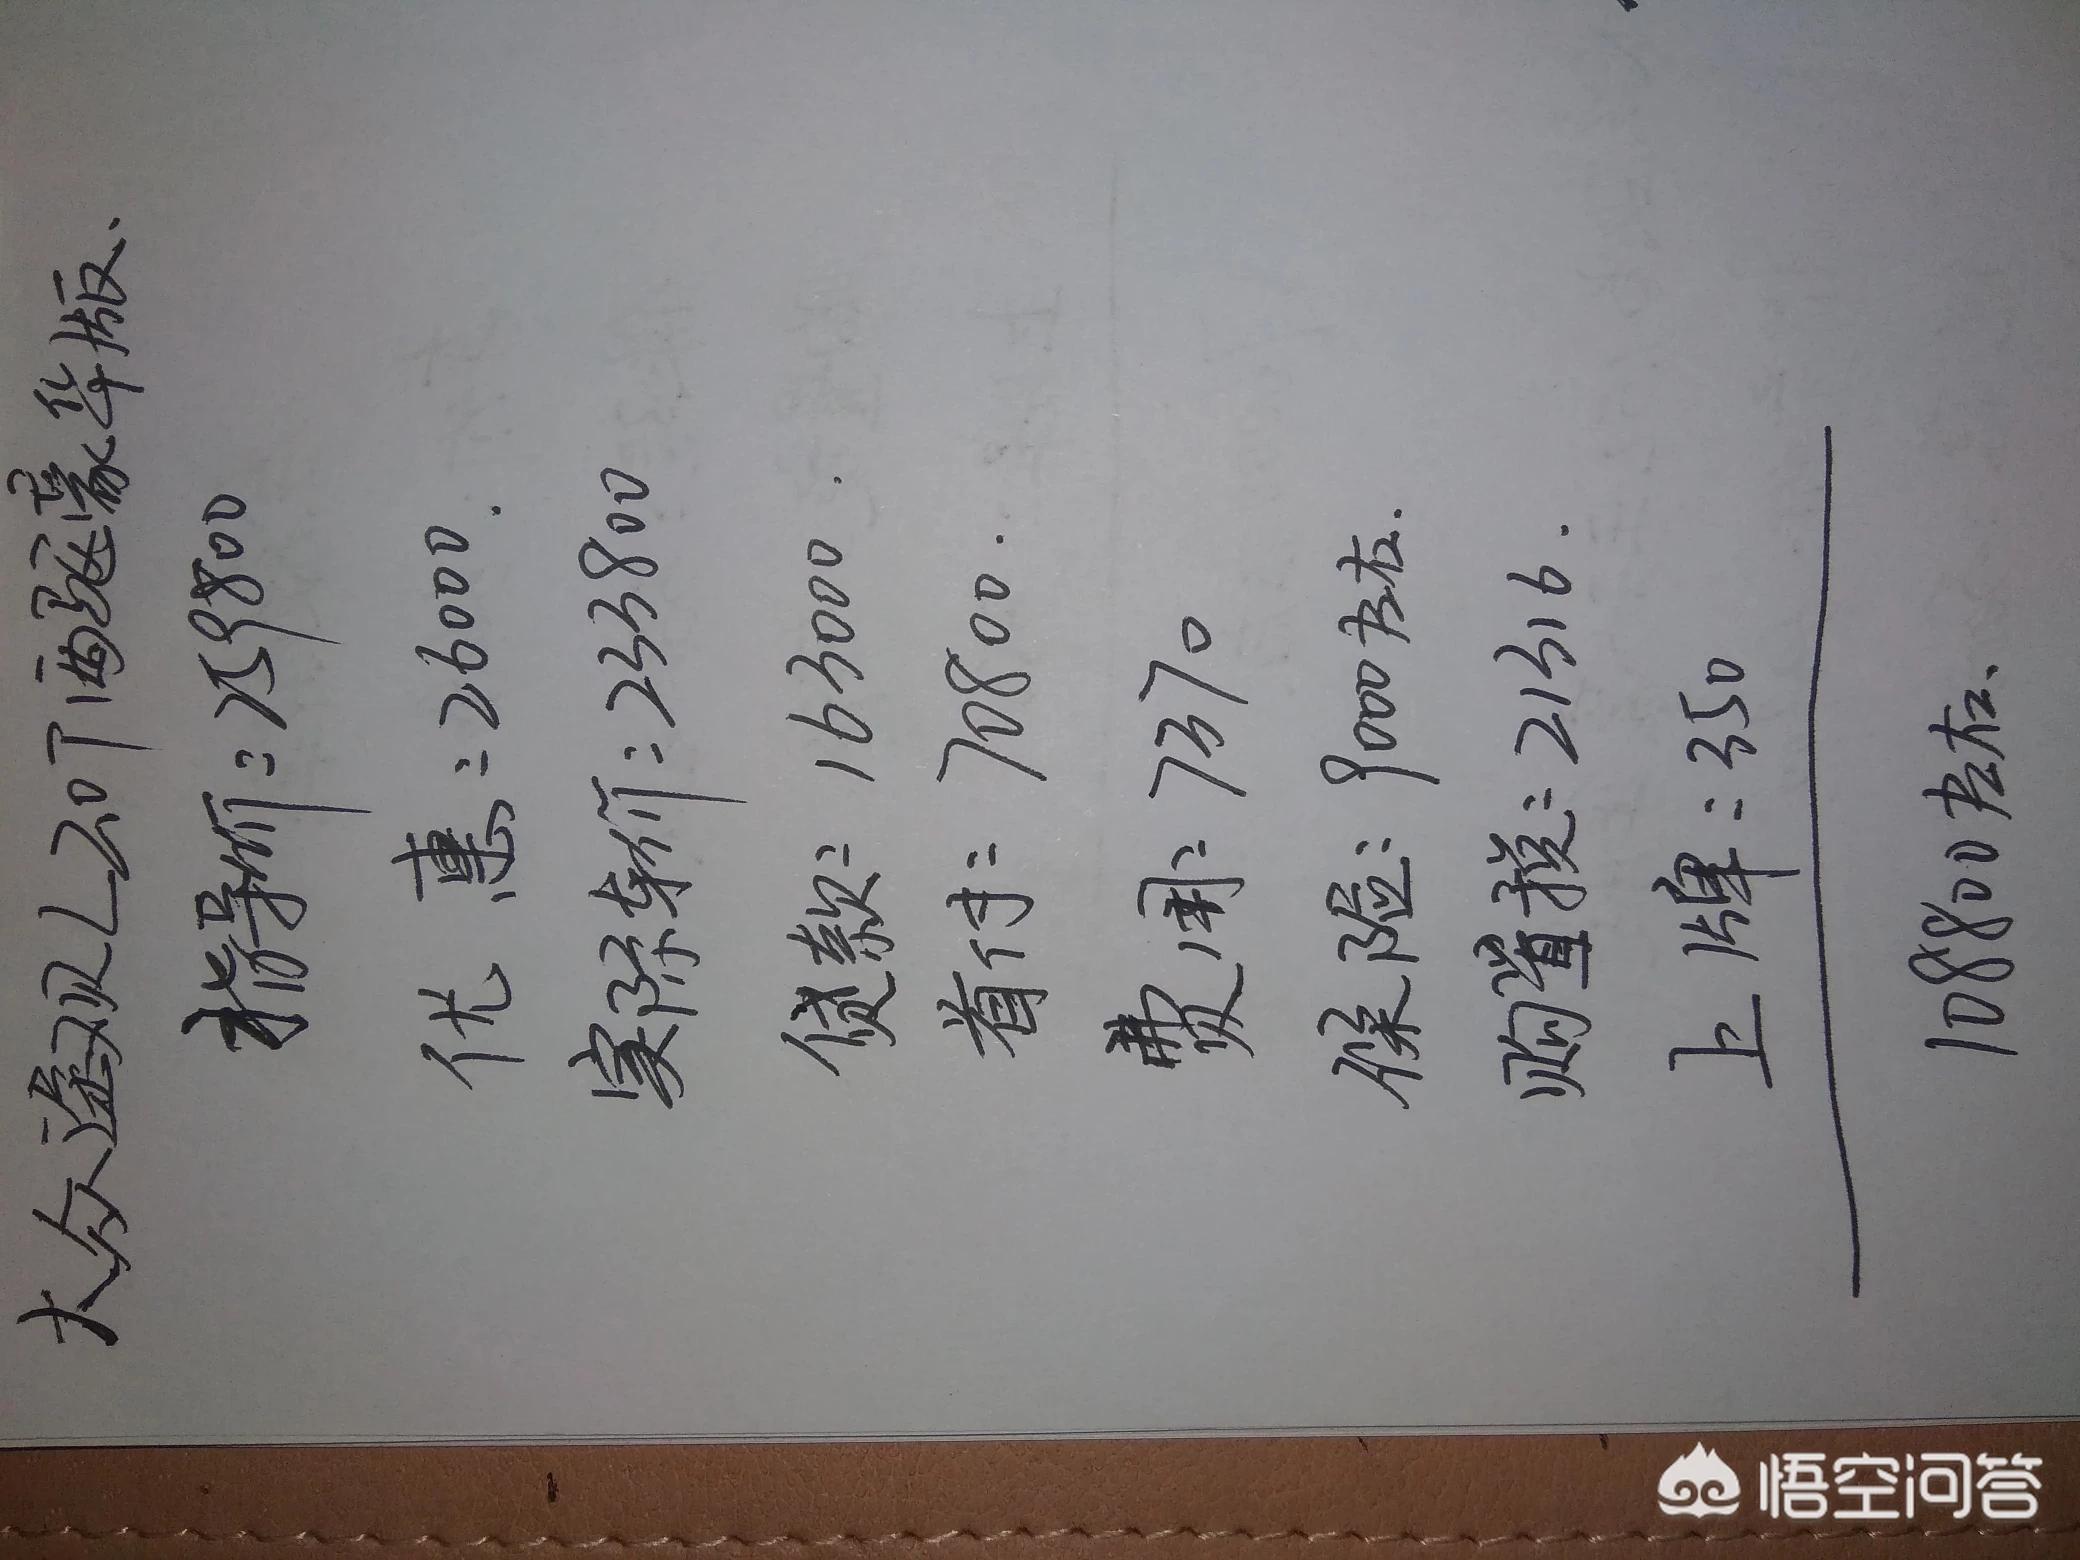 大众途观L2.0T两驱豪华版.
指导价:259800
优惠:26000.
实际车价:233800
贷款:163000.
首付:70800.
费用:7370
保险:9000左右.
购置税:21316.
上牌:350
108800左右.
悟空问答